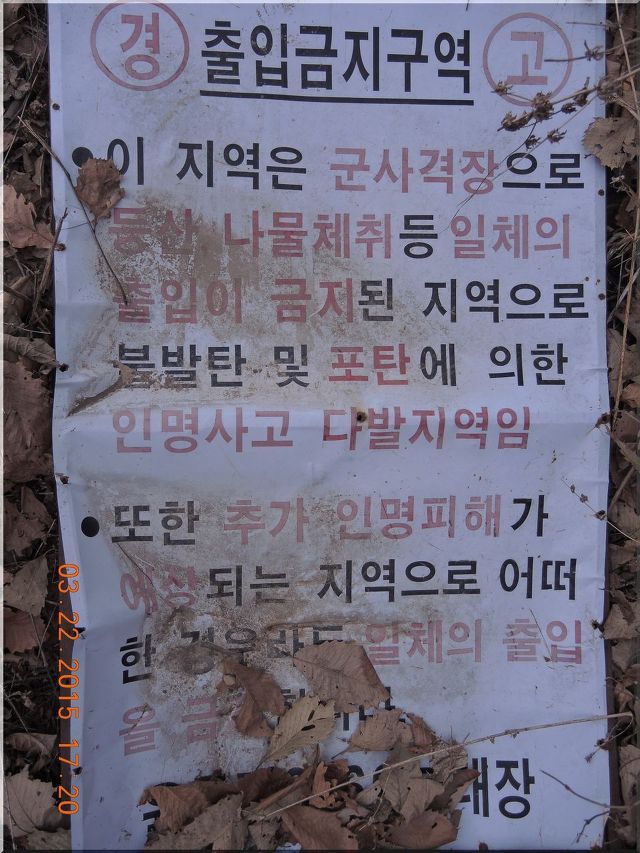 경 출입금지구역 고
이 지역은 군사격장으로
등산 나물체취등 일체의
출입이 금지된 지역으로
불발탄 및 포탄에 의한
인명사고 다발지역임
또한 추가 인명피해가
예상되는 지역으로 어떠
한 경우라도 일체의 출입
을 금
대장
03.22.2015 17:20